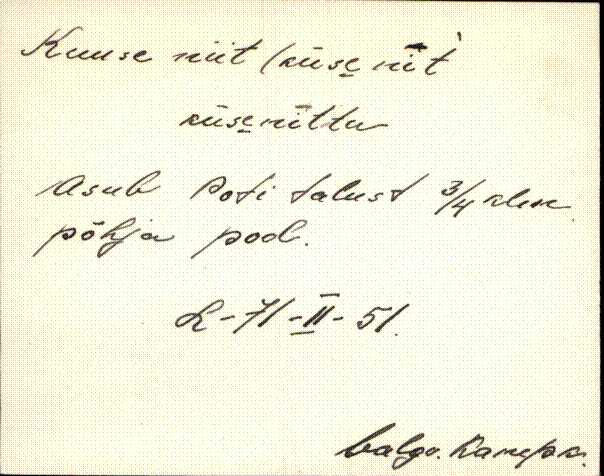 Kuuse niit (küse nīt`
küsenīttu
Asub Poti talust 3/4 klm
põhja pool.
L-71-II-51.
Valgv. Kanepi k.